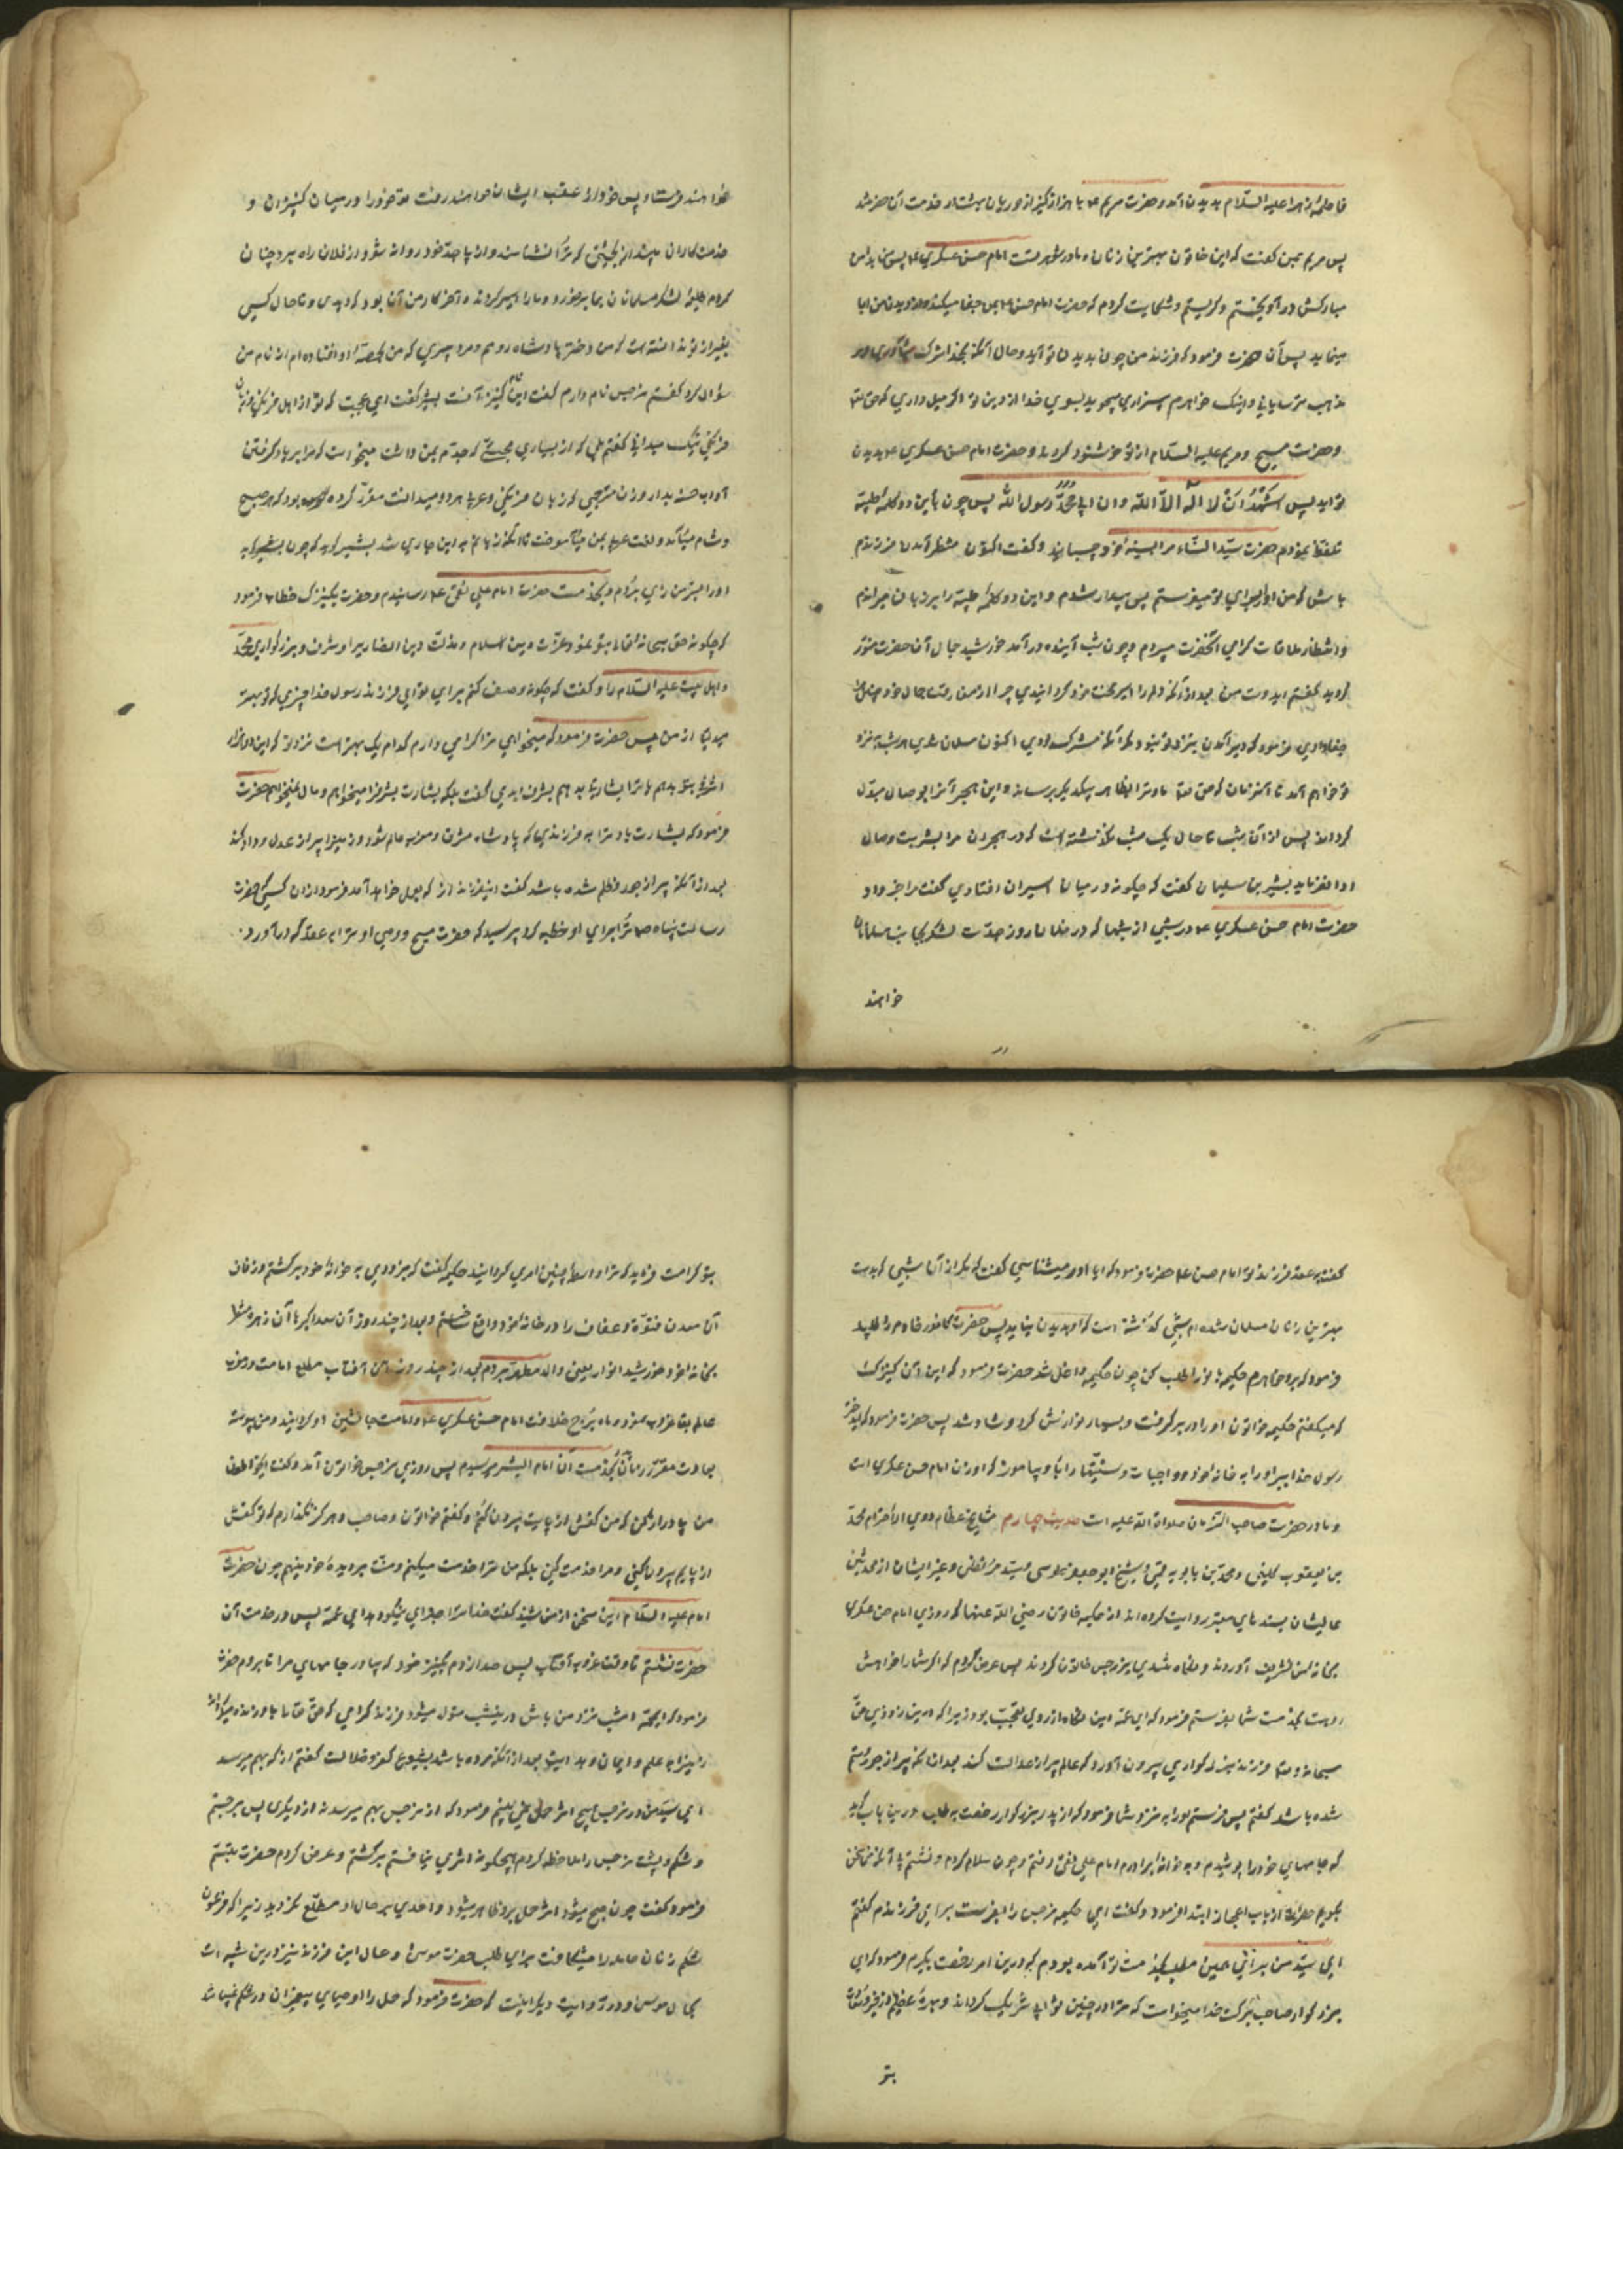 فاطمهٔ زهرا علیه السّلام بدیدن آمد و حضرت مریم ع با هزار کنیز از حوریان بهشت در خدمت آن حضرت
پس مریم بمن گفت که این خاتون بهترین زنان و مادر شوهر تست امام حسن عسکری ع پس بدامن
مبارکش درآویختم و گریستم و شکایت کردم که حضرت امام حسن بمن جفا میکند و از دیدن من ابا
مینماید پس آن حضرت فرمود که فرزند من چون بدیدن تو آید و حال آنکه بخدا شرک میآوری و بر
مذهب ترسایانی و اینک خواهرم مریم بیزاری میجوید بسوی خدا از دین تو اگر میل داری که حق تعالی
و حضرت مسیح و مریم علیه السّلام از تو خوشنود گردند و حضرت امام حسن عسکری ع بدیدن
تو آید پس اشهد ان لا اله الّا اللّه و ان ابی محمّد رسول اللّه پس چون باین دو کلمهٔ طیّبه
تلفظ نمودم حضرت سیّدة النّساء مرا بسینهٔ خود چسبانید و گفت اکنون منتظر آمدن فرزندم
باش که من او را برای تو میفرستم پس بیدار شدم و این دو کلمهٔ طیّبه را بر زبان میراندم
و انتظار ملاقات گرامی آنحضرت میبردم و چون شب آینده درآمد خورشید جمال آن حضرت منوّر
گردید گفتم ای دوست من بعد از آنکه دلم را اسیر محبت خود گردانیدی چرا از من رفت جمال خود
جفا دادی فرمود که دیر آمدن بنزد تو نبود مگر آنکه مشرک بودی اکنون مسلمان شدی هر شب نزد
تو خواهم آمد تا آنزمان که حق تعالی ما و ترا بظاهر بیکدیگر برساند و این هجر را بوصال مبدّل
گرداند پس از آن شب تا حال یک شب نگذشته است که در هجران مرا بشربت وصال
دوا نفرماید بشیر بن سلیمان گفت که چگونه در میان اسیران افتادی گفت مرا خبر داد
حضرت امام حسن عسکری ع در شبی از شبها که در فلان روز جدّت لشکری بجانب مسلمانان
خواهند
خواهند فرستاد پس خود از عقب ایشان خواهند رفت تو خود را در میان کنیزان و
خدمتکاران بینداز بحیثیتی که ترا نشناسند و از پی جدّ خود روانه شو و از فلان راه برو چنان
کردم طلیعهٔ لشکر مسلمانان بما برخورد و ما را اسیر کردند و آخر کار من آن بود که دیدی و تا حال کسی
بغیر از تو ندانسته است که من دختر پادشاه رومم و مرد پیری که من بحصّهٔ او افتاده‌ام از نام من
سؤال کرد گفتم نرجس نام دارم گفت این نام کنیزانست بشیر گفت ای عجبت که تو از اهل فرنگی و زبان
فرنگی نیک میدانی گفتم بلی که از بسیاری محبّتی که جدّم بمن داشت میخواست که مرا بر یاد گرفتن
آداب حسنه بدارد زن مترجمی که زبان فرنگی و عربی هر دو میدانست مقرّر کرده بود که هر صبح
و شام میآمد و لغت عربی بمن میآموخت تا آنکه زبانم باین جاری شد بشیر گوید که چون بشهر
او را بسرّمن رای بردم و بخدمت حضرت امام علی نقی ع رسانیدم و حضرت بکنیزک خطاب فرمود
که چگونه حق سبحانه تعالی بتو نمود عزّت دین اسلام و مذلّت دین نصاری را و شرف و بزرگواری محمّد
و اهل بیت علیه السّلام را و گفت که چگونه وصف کنم برای تو ای فرزند رسول خدا چیزی که تو بهتر
میدانی از من پس حضرت فرمود که میخواهم ترا گرامی دارم کدام یک بهتر است نزد تو که ده هزار
اشرفی بتو بدهم یا ترا بشارت بدهم بشرف ابدی گفت بلکه بشارت شرف را میخواهم و مال نمیخواهم حضرت
فرمود که بشارت باد ترا به فرزندی که پادشاه مشرق و مغرب عالم شود و زمین را پر از عدل و داد کند
بعد از آنکه پر از جور و ظلم شده باشد گفت این فرزند از که بعمل خواهد آمد فرمود از آن کسی که حضرت
رسالت پناه ص ترا برای او خطبه کرد پرسید که حضرت مسیح و وصی او ترا به عقد که درآورد
گفت به عقد فرزند تو امام حسن ع حضرت فرمود که آیا او را میشناسی گفت که مگر از آن شبی که بدست
بهترین زنان مسلمان شده‌ام شبی گذشته است که او بدیدن من نیاید پس حضرت کافور خادم را طلبید
فرمود که برو خواهرم حکیمه را طلب کن چون حکیمه داخل شد حضرت فرمود که این آن کنیزک است
که میگفتم حکیمه خاتون او را در بر گرفت و بسیار نوازش کرد و شاد شد پس حضرت فرمود که ای دختر
رسول خدا ببر او را به خانهٔ خود و واجبات و سنّتها را باو بیاموز که او زن امام حسن عسکری است
و مادر حضرت صاحب الزّمان صلواة اللّه علیه است حدیث چهارم مشایخ عظام ذوی الاحترام محمّد
بن یعقوب کلینی و محمّد بن بابویه قمّی و شیخ ابو جعفر طوسی و سیّد مرتضی و غیر ایشان از محدّثین
عالیشان بسندهای معتبر روایت کرده‌اند از حکیمه خاتون رضی اللّه عنها که روزی امام حسن عسکری
بخانهٔ من تشریف آوردند و نگاه تندی بنرجس خاتون کردند پس عرض کردم که اگر شما را خواهش
او هست بخدمت شما بفرستم فرمود که ای عمّه این نگاه از روی تعجّب بود زیرا که درین زودی حقّ
سبحانه و تعالی فرزند بزرگواری از او بیرون آورد که عالم را پر از عدالت کند بعد از آنکه پر از جور و ستم
شده باشد گفتم پس فرستم او را به نزد شما فرمود که از پدر بزرگوارم رخصت بطلب درین باب گوید
که جامهای خود را پوشیدم و به خانهٔ برادرم امام علی نقی رفتم و چون سلام کردم و نشستم بی آنکه من سخن
بگویم حضرت از باب اعجاز ابتدا فرمود و گفت ای حکیمه نرجس را بفرست برای فرزندم گفتم
ای سیّد من برای همین مطلب بخدمت تو آمده بودم که درین امر رخصت بگیرم فرمود که ای
بزرگوار صاحب برکت خدا میخواست که ترا در چنین ثوابی شریک گرداند و بهرهٔ عظیم از خیر و ثواب
بتو
بتو کرامت فرماید که ترا واسطهٔ چنین امری گردانید حکیمه گفت که بزودی به خانهٔ خود برگشتم و زفاف
آن معدن فتوّة و عفاف را در خانهٔ خود واقع ساختم و بعد از چند روز آن سعد اکبر با آن زهرهٔ منظر
بخانهٔ خورشید انوار یعنی والد مطهّر بردم بعد از چند روز آن آفتاب مطلع امامت در مغرب
عالم بقا غروب نمود و ماه برج خلافت امام حسن عسکری ع در امامت جانشین او گردید و من پیوسته
بعادت مقرّر زمان پدر بخدمت آن امام البشر میرسیدم پس روزی نرجس خاتون آمد و گفت ای خاتون
من پا دراز کن که من کفش از پایت بیرون کنم و گفتم خاتون و صاحب و هرگز نگذارم که تو کفش
از پایم بیرون کنی و مرا خدمت کنی بلکه من ترا خدمت میکنم و منّت بر دیدهٔ خود مینهم چون حضرت
امام علیه السّلام این سخن از من شنید گفت خدا ترا جزای نیکو دهد ای عمّه پس در خدمت آن
حضرت نشستم تا وقت غروب آفتاب پس صدا زدم بکنیز خود که بیاور جامهای مرا تا بروم حضرت
فرمود که ای عمّه امشب نزد من باش درینشب متولّد میشود فرزند گرامی که حقّ تعالی باو زنده میگرداند
زمین را به علم و ایمان و هدایت بعد از آنکه مرده باشد بشیوع کفر و ضلالت گفتم از که بهم میرسد
ای سیّد من و در نرجس هیچ اثر حمل نمی‌بینم فرمود که از نرجس بهم میرسد نه از دیگری پس برجستم
و شکم و پشت نرجس را ملاحظه کردم هیچگونه اثری نیافتم برگشتم و عرض کردم حضرت تبسّم
فرمود و گفت چون صبح میشود اثر حمل برو ظاهر میشود و احدی بر حال او مطّلع نگردید زیرا که فرعون
شکم زنان حامله را میشکافت برای طلب حضرت موسی و حال این فرزند نیز درین شبیه است
بحال موسی و در روایت دیگر اینست که حضرت فرمود که حمل ما اوصیای پیغمبران در شکم نمیباشد